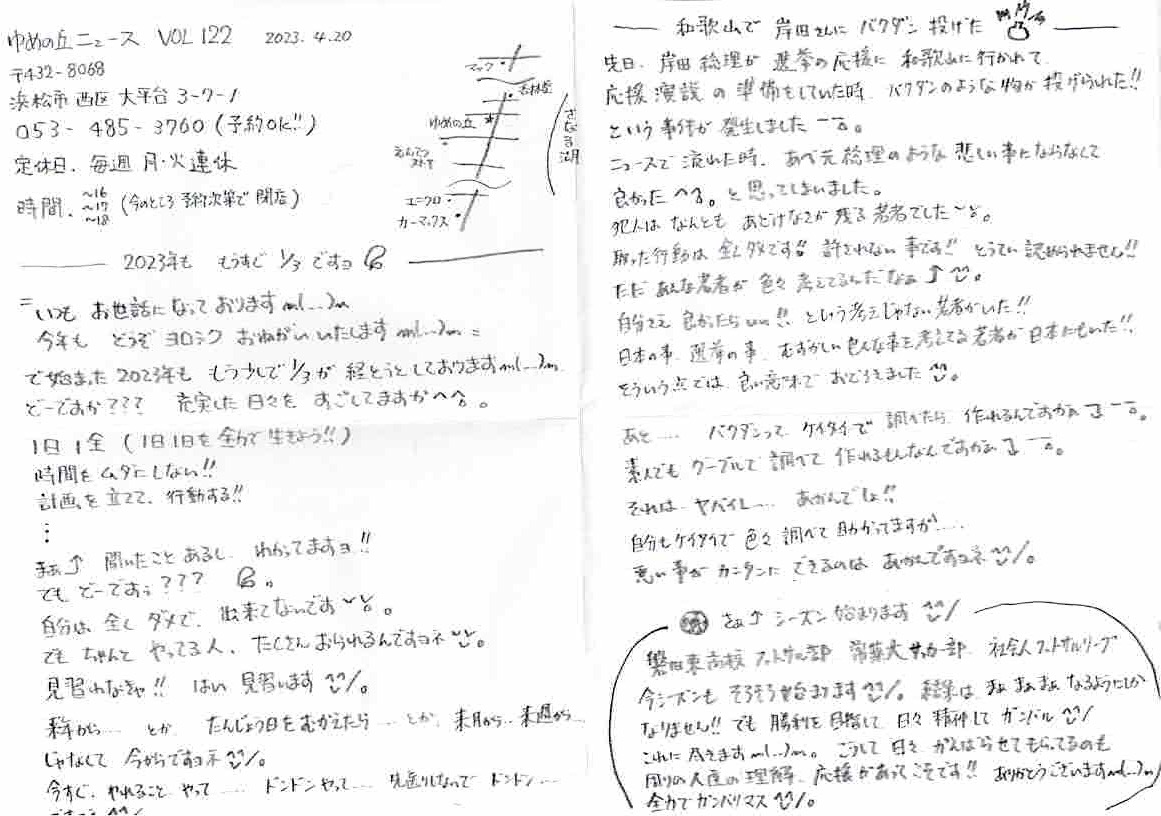 ゆめの丘ニュース VOL 122 2023. 4.20
〒432-8068
浜松市 西区 大平台 3-7-1
053- 485- 3760 (予約OK!!)
定休日. 毎週 月・火 連休
時間. ~16 ~17 ~18 (今のところ 予約次第で 閉店)
マック
杏林堂
ゆめの丘
えんてつストア
ユニクロ
カーマックス
さなる湖
2023年も もうすぐ 1/3 ですョ
= いつも お世話になっております m(_ _)m
今年も どうぞ ヨロシク おねがいいたします m(_ _)m =
で始まった 2023年も もう少しで 1/3が 経とうとしております m(_ _)m
どーですか??? 充実した 日々を すごしてますか^^。
1日 1全 (1日1日を 全力で 生きよう!!)
時間を ムダにしない!!
計画を 立てて、行動する!!
⋮
まぁ↑ 聞いたこと あるし、わかってますョ!!
でも どーですぅ???
自分は 全く ダメで、出来てないです。
でも ちゃんと やってる人、たくさん おられるんですョネ。
見習わなきゃ!! はい 見習います ^^/。
来年から… とか たんじょう日を むかえたら… とか、来月から… 来週から…
じゃなくて 今からですョネ ^^/。
今すぐ、やれること やって…… ドンドン やって…. 先送りしないで ドンドン…
和歌山で 岸田さんに バクダン 投げた
先日、岸田 総理が 選挙の応援に 和歌山に 行かれて、
応援 演説 の 準備をしていた時、バクダンのような 物が 投げられた!!
という 事件が 発生しました ー_ー。
ニュースで 流れた時、あべ元総理のような 悲しい事にならなくて
良かった ^^。と 思ってしまいました。
犯人は なんとも あどけなさが 残る 若者でした。
取った行動は 全くダメです!! 許されない 事です!! とうてい 認められません!!
ただ あんな若者が 色々 考えてるんだなぁ ↑ ^^。
自分さえ 良かったらいい!! という 考えじゃない 若者がいた!!
日本の事、選挙の事、むずかしい 色んな事を 考えてる 若者が 日本にもいた!!
そういう点では、良い意味で おどろきました ^^。
あと…. バクダンって、ケイタイで 調べたら、作れるんですかぁ ー_ー。
素人でも グーグルで 調べて 作れるもんなんですかぁ ー_ー。
それは ヤバイし…. あかんでしょ!!
自分もケイタイで 色々 調べて 助かってますが….
悪い事が カンタンに できるのは あかんですョネ ^^/。
さぁ↑ シーズン 始まります ^^/
磐田東高校 フットサル部 常葉大サッカー部 社会人フットサルリーグ
今シーズンも そろそろ始まります ^^/。結果は、まぁ まぁ まぁ なるようにしか
なりません!! でも 勝利を 目指して、日々 精神して ガンバル ^^/
これに 尽きます m(_ _)m。こうして 日々 がんばらせてもらってるのも
周りの人達の 理解、応援があってこそです!! ありがとうございます m(_ _)m
全力で ガンバリマス ^^/。